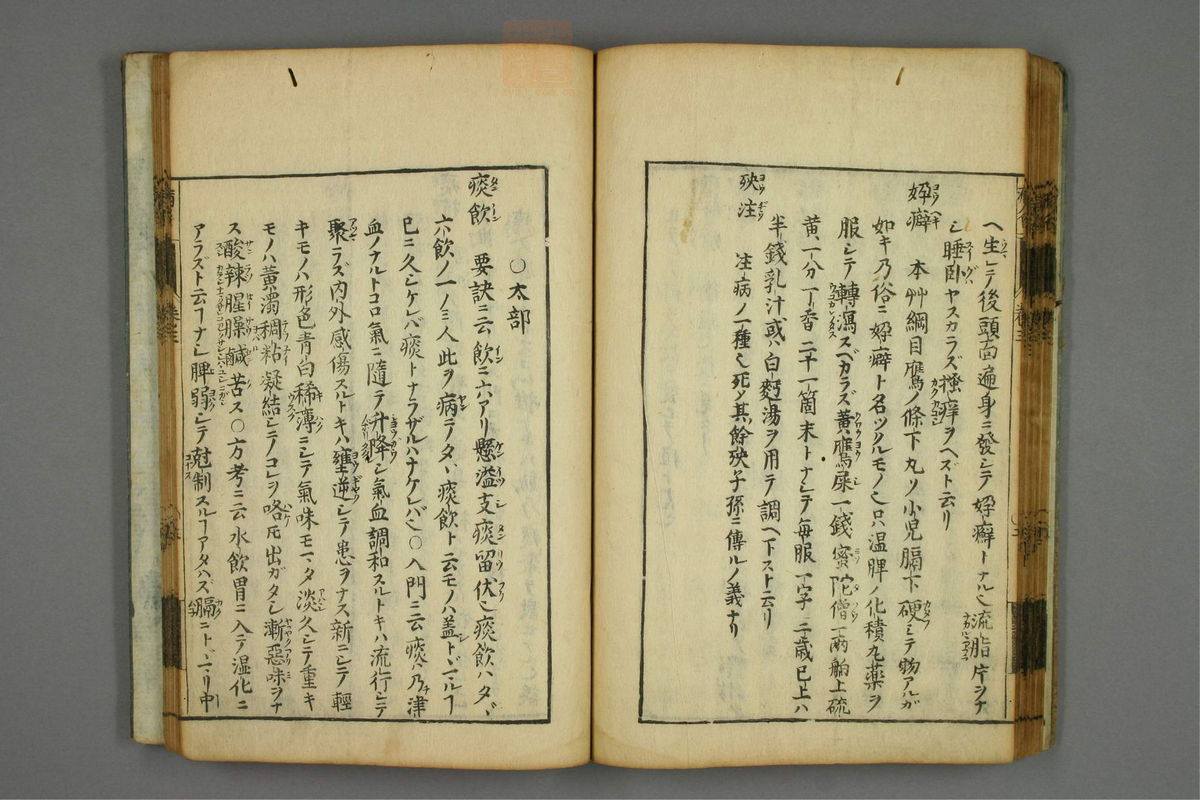 ヘ生シテ後頭面遍身ニ發シテ㚿癖トナル也流脂片ヲナ
シ睡臥ヤスカラズ搔痒ヲヘズト云リ
㚿癖 本艸綱目鷹ノ條下丸ソ小児膈下硬シテ物アルガ
如キ乃俗ニ㚿癖ト名ツルモノ也只温脾ノ化積丸薬ヲ
服シテ轉瀉スベカラズ黄鷹屎一錢蜜陀僧一兩舶上硫
黄一分丁香二十一箇末トナシテ毎服一字三歳已上ハ
半錢乳汁或ハ白麪湯ヲ用テ調ヘ下スト云リ
殃注 注病ノ一種也死シ其餘殃子孫ニ傳ルノ義ナリ
○太部
痰飲 要訣ニ云飲ニ六ハアリ懸溢支痰留伏也痰飲ハタヾ
六飲ノ一ノミ人此ヲ病テタヾ痰飲ト云モノハ蓋トヾマルヿ
已ニ久シケレバ痰トナラザルハナケレバ也○入門ニ云痰ハ乃津
血ノナルトコロ氣ニ隨テ升降シ氣血調和スルトキハ流行シテ
聚ラズ内外感傷スルトキハ壅逆シテ患ヲナス新ニシテ輕
キモノハ形色青白稀薄ニシテ氣味モマタ淡久シテ重キ
モノハ黄濁稠粘凝結シテコレヲ咯𪜈出ガタシ漸惡味ヲナ
ス酸辣腥臊鹹苦ス○方考ニ云水飲胃ニ入テ湿化ニ
アラズト云ヿナシ脾弱シテ尅制スルヿアタハズ膈ニトヾマリ中